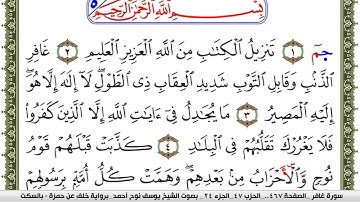 بِسْمِ اللَّهِ الرَّحْمَٰنِ الرَّحِيمِ
حمٓ ١ تَنزِيلُ الْكِتَٰبِ مِنَ اللَّهِ الْعَزِيزِ الْعَلِيمِ ٢ غَافِرِ
الذَّنۢبِ وَقَابِلِ التَّوْبِ شَدِيدِ الْعِقَابِ ذِى الطَّوْلِ لَآ إِلَٰهَ إِلَّا هُوَ
إِلَيْهِ الْمَصِيرُ ٣ مَا يُجَٰدِلُ فِىٓ ءَايَٰتِ اللَّهِ إِلَّا الَّذِينَ كَفَرُوا
فَلَا يَغْرُرْكَ تَقَلُّبُهُمْ فِى الْبِلَٰدِ ٤ كَذَّبَتْ قَبْلَهُمْ قَوْمُ
نُوحٍ وَالْأَحْزَابُ مِنۢ بَعْدِهِمْ وَهَمَّتْ كُلُّ أُمَّةٍۭ بِرَسُولِهِمْ
سورة غافر _ الصفحة ٤٦٧ _ الحزب ٤٧_ الجزء ٢٤_ بصوت الشيخ يوسف نوح أحمد_ برواية خلف عن حمزة - بالسكت